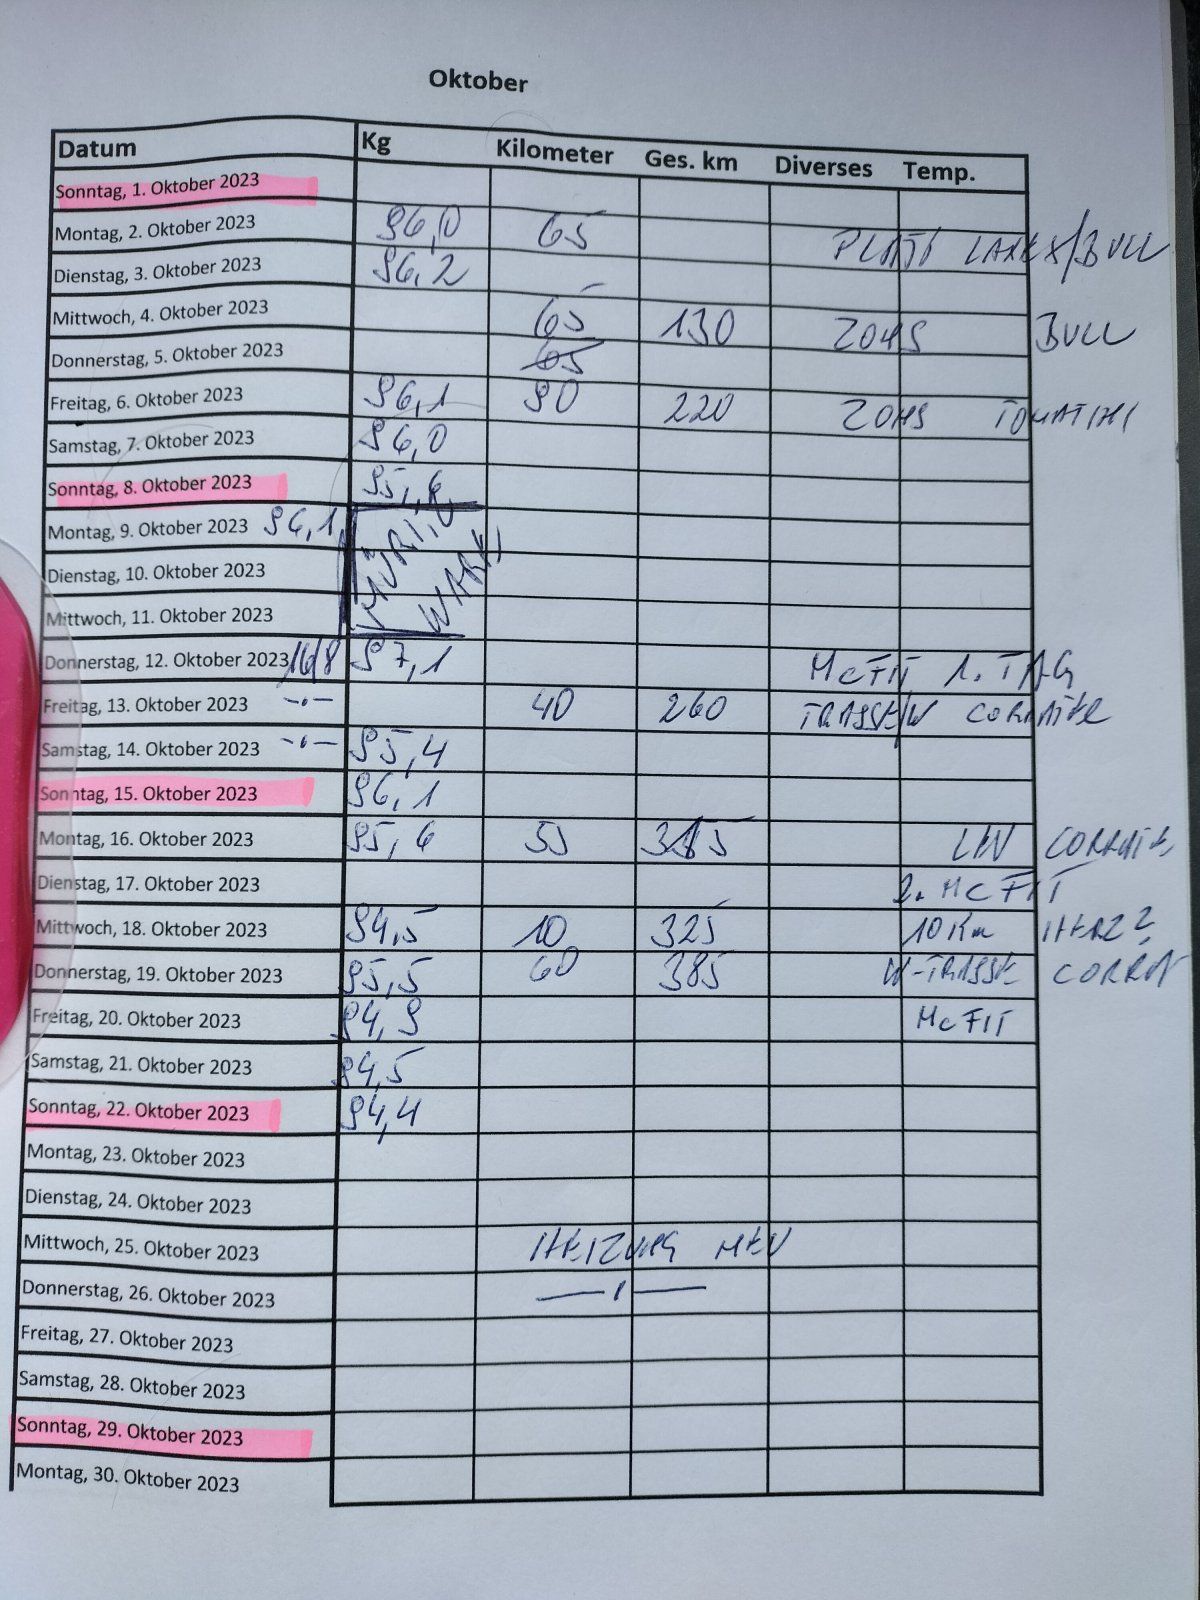 Oktober
Datum Kg Kilometer Ges. km Diverses Temp.
Sonntag, 1. Oktober 2023
Montag, 2. Oktober 2023 96,0 65 BULL
Dienstag, 3. Oktober 2023 96,2
Mittwoch, 4. Oktober 2023 65 130 ZONS BULL
Donnerstag, 5. Oktober 2023 65
Freitag, 6. Oktober 2023 96,1 90 220 ZONS
Samstag, 7. Oktober 2023 96,0
Sonntag, 8. Oktober 2023 95,6
Montag, 9. Oktober 2023 96,1
Dienstag, 10. Oktober 2023
Mittwoch, 11. Oktober 2023
Donnerstag, 12. Oktober 2023 16/8 97,1 McFIT 1. TAG
Freitag, 13. Oktober 2023 -"- 40 260
Samstag, 14. Oktober 2023 -"- 95,4
Sonntag, 15. Oktober 2023 96,1
Montag, 16. Oktober 2023 95,6 55 315
Dienstag, 17. Oktober 2023 2. McFIT
Mittwoch, 18. Oktober 2023 94,5 10 325 10 Km HERZ?
Donnerstag, 19. Oktober 2023 95,5 60 385
Freitag, 20. Oktober 2023 94,9 McFIT
Samstag, 21. Oktober 2023 94,5
Sonntag, 22. Oktober 2023 94,4
Montag, 23. Oktober 2023
Dienstag, 24. Oktober 2023
Mittwoch, 25. Oktober 2023 HEIZUNG NEU
Donnerstag, 26. Oktober 2023 —"—
Freitag, 27. Oktober 2023
Samstag, 28. Oktober 2023
Sonntag, 29. Oktober 2023
Montag, 30. Oktober 2023